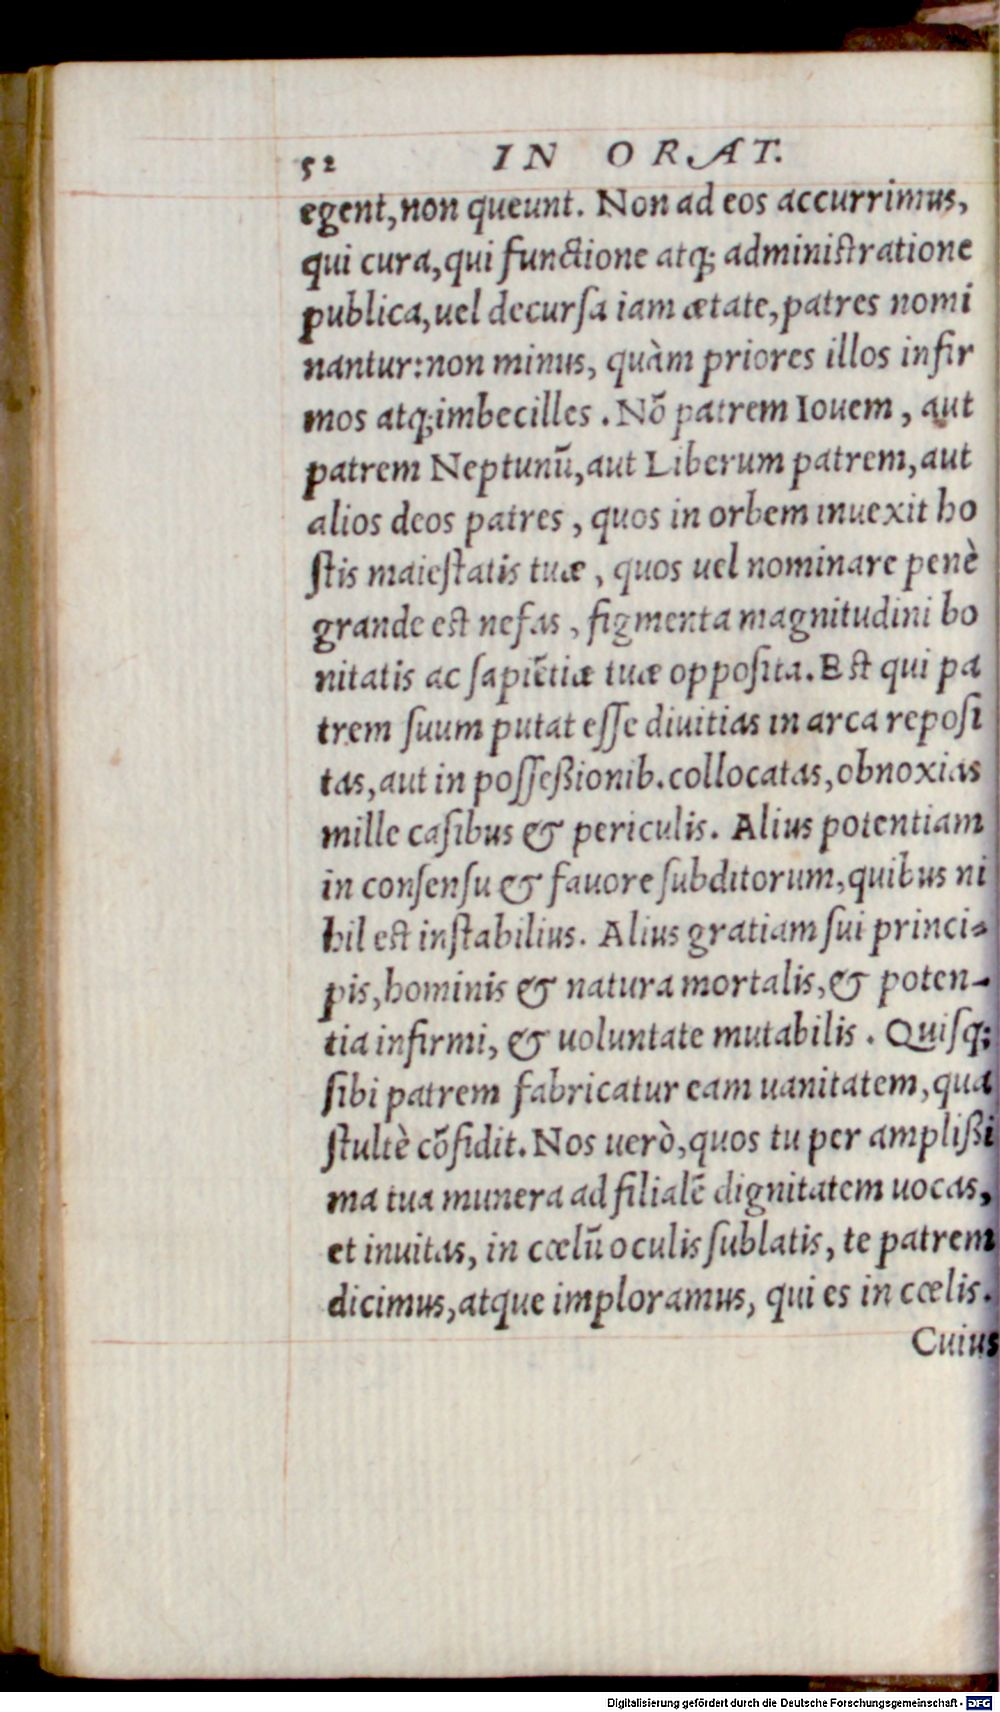 52 IN ORAT.
egent, non queunt. Non ad eos accurrimus,
qui cura, qui functione atq; administratione
publica, uel decursa iam ætate, patres nomi
nantur: non minus, quàm priores illos infir
mos atq; imbecilles. Nõ patrem Iouem, aut
patrem Neptunũ, aut Liberum patrem, aut
alios deos patres, quos in orbem inuexit ho
stis maiestatis tuæ, quos uel nominare penè
grande est nefas, figmenta magnitudini bo
nitatis ac sapiẽtiæ tuæ opposita. Est qui pa
trem suum putat esse diuitias in arca reposi
tas, aut in posseßionib. collocatas, obnoxias
mille casibus & periculis. Alius potentiam
in consensu & fauore subditorum, quibus ni
hil est instabilius. Alius gratiam sui princi-
pis, hominis & natura mortalis, & poten-
tia infirmi, & uoluntate mutabilis. Quisq;
sibi patrem fabricatur eam uanitatem, qua
stultè cõfidit. Nos uerò, quos tu per amplißi
ma tua munera ad filialẽ dignitatem uocas,
et inuitas, in cœlũ oculis sublatis, te patrem
dicimus, atque imploramus, qui es in cœlis.
Cuius
Digitalisierung gefördert durch die Deutsche Forschungsgemeinschaft - DFG